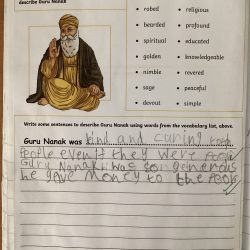 describe Guru Nanak
• robed
• bearded
• spiritual
• golden
• nimble
• sage
• devout
• religious
• profound
• educated
• knowledgeable
• revered
• peaceful
• simple
Write some sentences to describe Guru Nanak using words from the vocabulary list, above.
Guru Nanak was kind and caring
people even if they were
Guru Nanak was so generous
he gave money to the